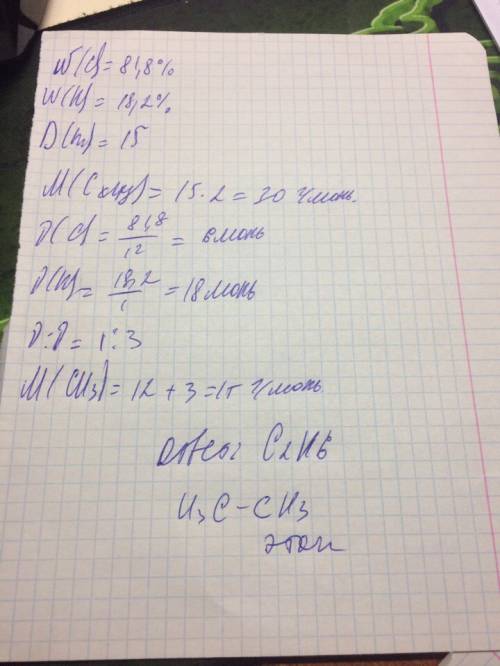 W(C) = 81,8%
W(H) = 18,2%
D(H₂) = 15
M(CxHy) = 15·2 = 30 г/моль.
ν(C) = 81,8/12 = 6 моль
ν(H) = 18,2/1 = 18 моль
ν:ν = 1:3
M(CH3) = 12 + 3 = 15 г/моль
Ответ C2H6
H3C-CH3
этан